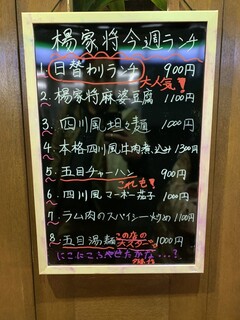 楊家将今週ランチ
1. 日替わりランチ 900円
大人気!
2. 楊家将麻婆豆腐 1100円
3. 四川風坦々麺 1000円
4. 本格四川風牛肉煮込み 1300円
5. 五目チャーハン 900円
これも!
6. 四川風マーボー茄子 1000円
7. ラム肉のスパイシー炒め 1100円
8. 五目湯麺 この店の大スター 1000円
にこにこらやせたかな…?